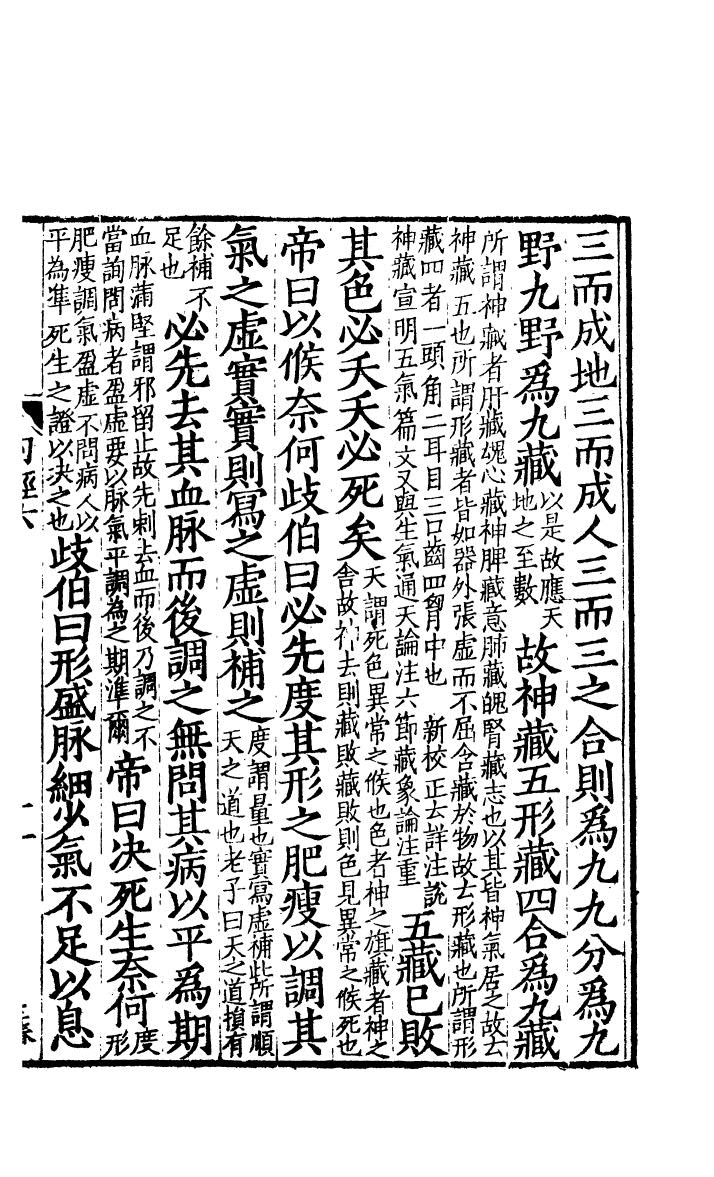 三而成地三而成人三而三之合則爲九九分爲九
野九野爲九藏以是故應天地之至數故神藏五形藏四合爲九藏
所謂神藏者肝藏魂心藏神脾藏意肺藏魄腎藏志也以其皆神氣居之故云
神藏五也所謂形藏者皆如器外張虛而不屈含藏於物故云形藏也所謂形
藏四者一頭角二耳目三口齒四胷中也 新校正云詳注說
神藏宣明五氣篇文又與生氣通天論注六節藏象論注重五藏已敗
其色必夭夭必死矣天謂死色異常之候也色者神之旗藏者神之
舍故神去則藏敗藏敗則色見異常之候死也
帝曰以候奈何歧伯曰必先度其形之肥瘦以調其
氣之虛實實則寫之虛則補之度謂量也實寫虛補此所謂順
天之道也老子曰天之道損有
餘補不
足也必先去其血脉而後調之無問其病以平爲期
血脉滿堅謂邪留止故先刺去血而後乃調之不
當詢問病者盈虛要以脉氣平調為之期準爾帝曰决死生奈何度形
肥瘦調氣盈虛不問病人以
平為準死生之證以决之也歧伯曰形盛脉細少氣不足以息
内經六